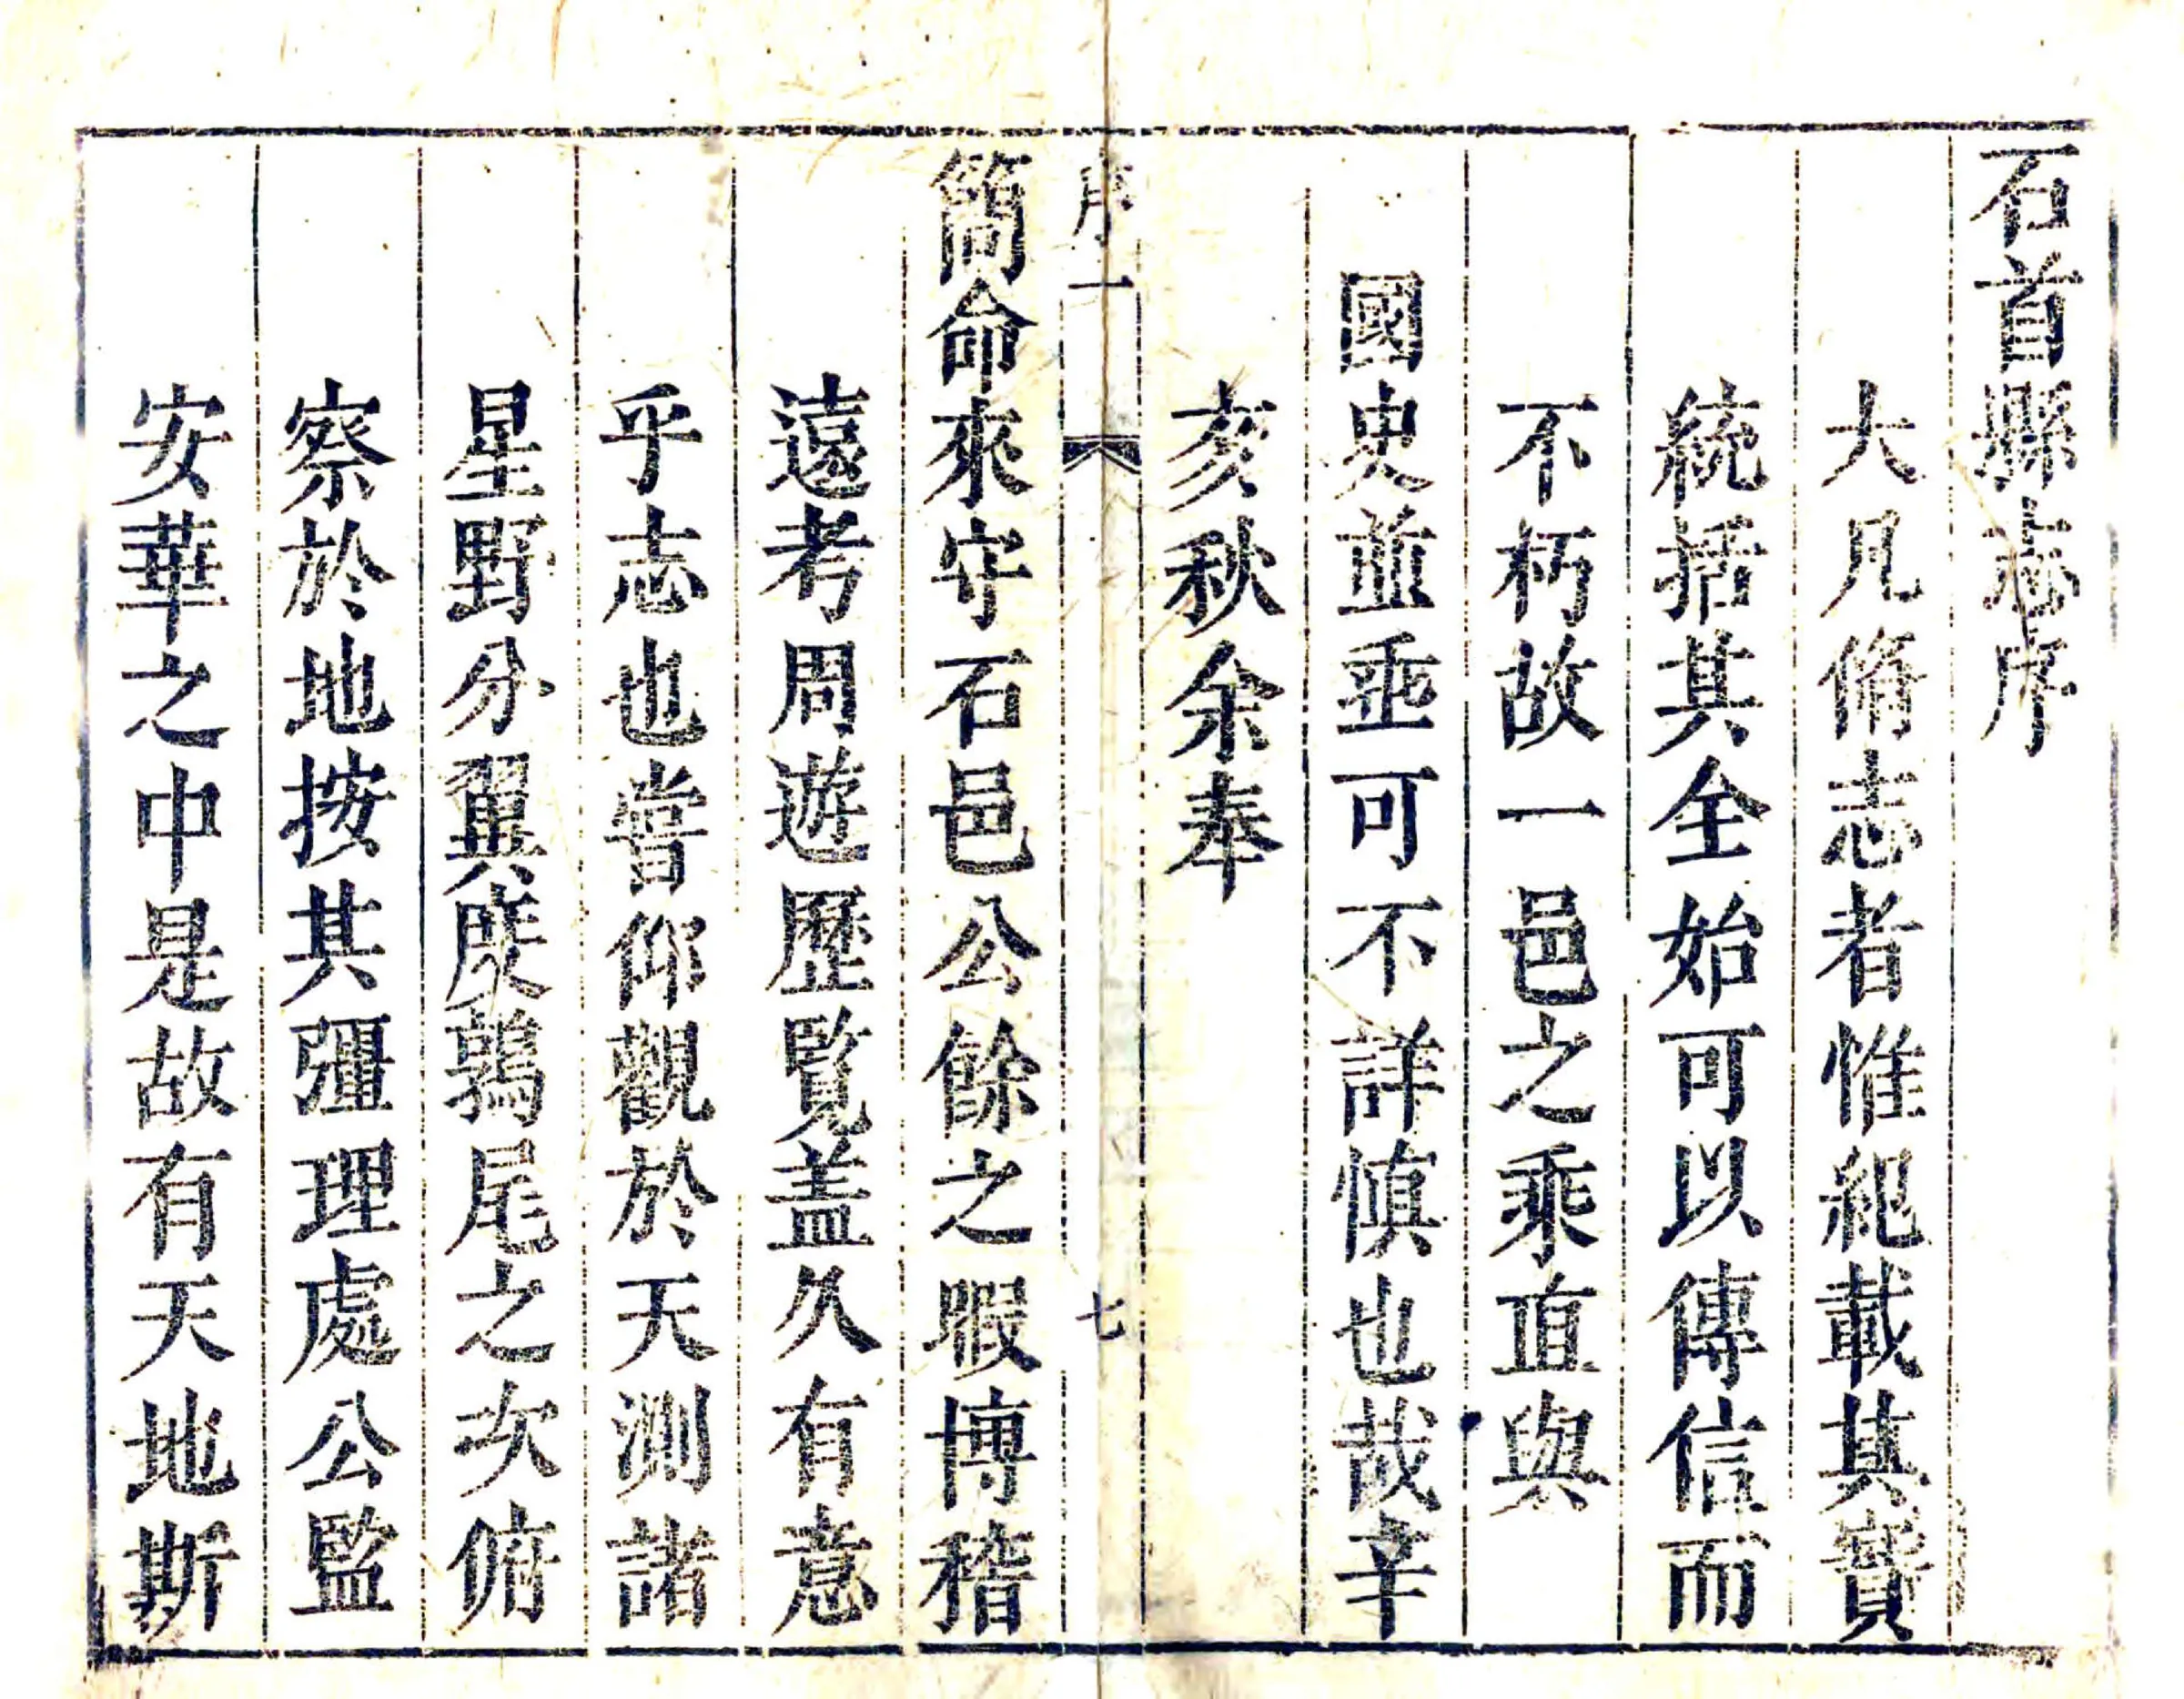 石首縣志序
大凡脩志者惟紀載其實
統括其全始可以傳信而
不朽故一邑之乘直與
國史並垂可不詳慎也哉辛
亥秋余奉
序一
七
簡命來守石邑公餘之暇博稽
遠考周遊歷覧盖久有意
乎志也嘗仰觀於天測諸
星野分翼度鶉尾之次俯
察於地按其疆理處公監
安華之中是故有天地斯